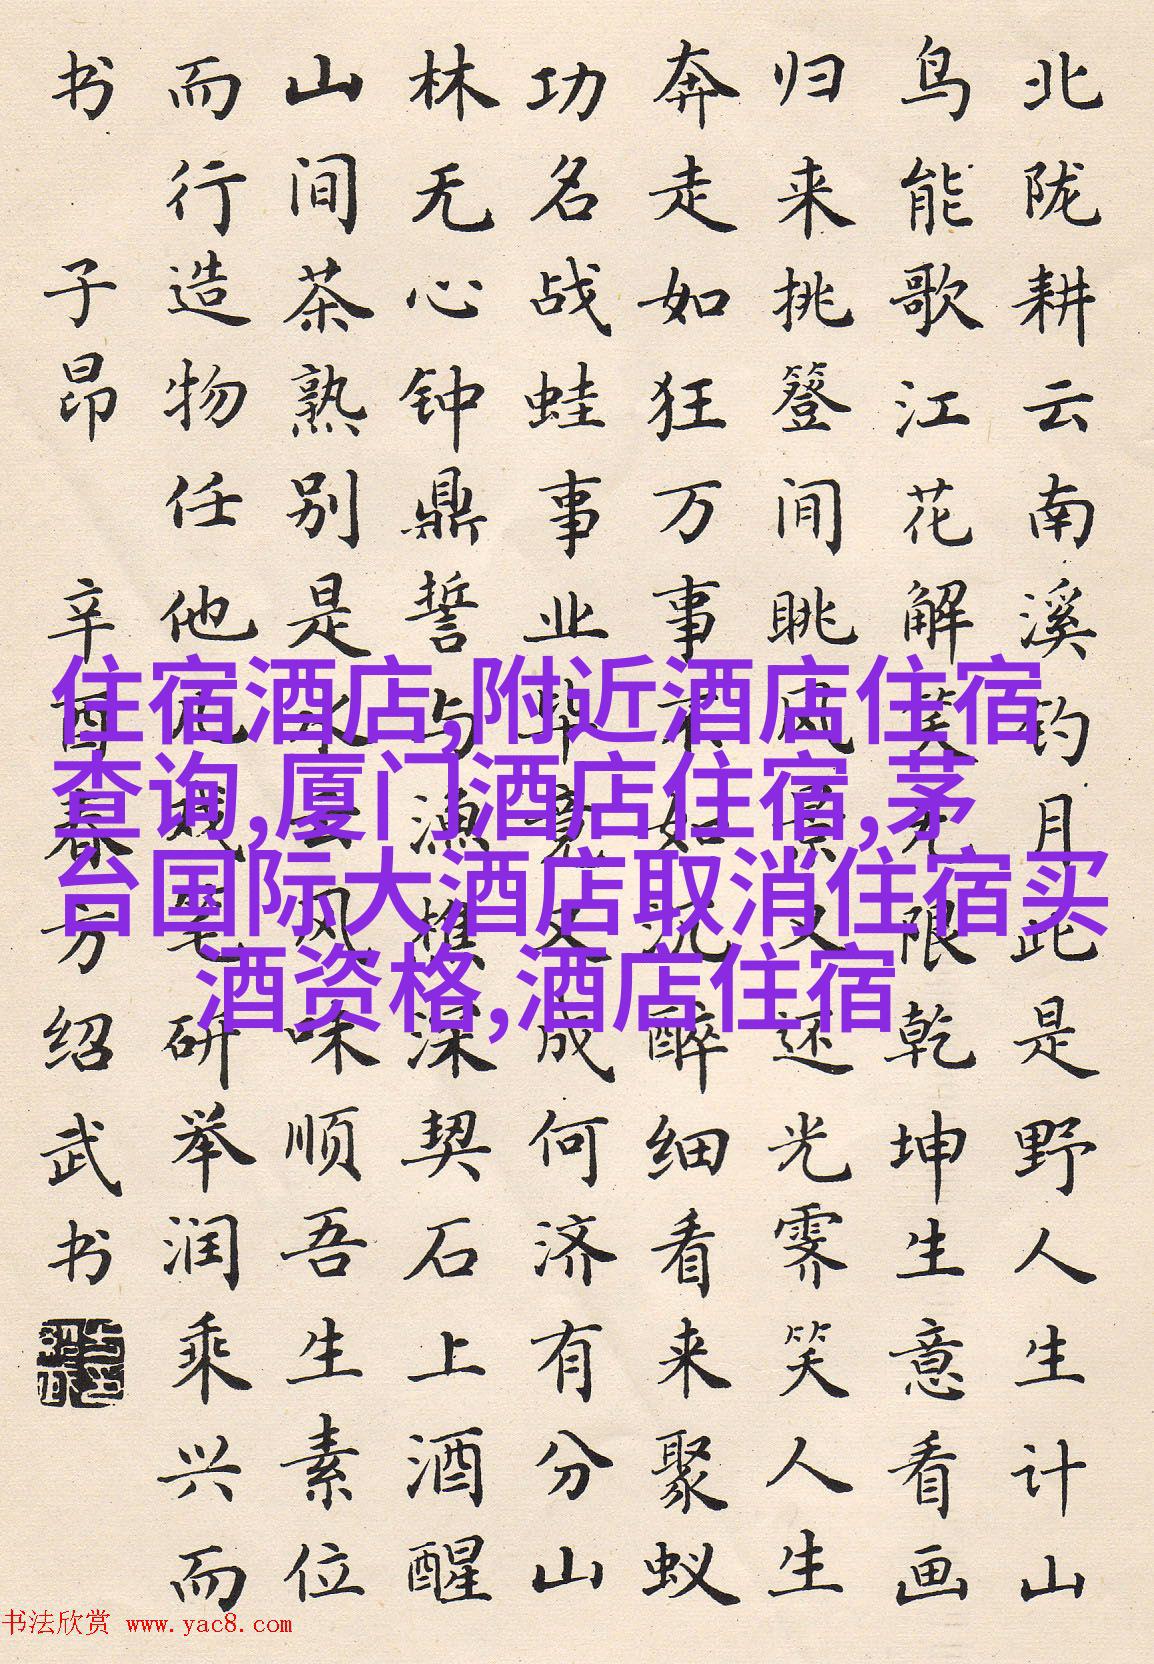 北陇耕云南溪钓月此是野人生计山
鸟能歌江花解笑无限乾坤生意看画
归来挑簦间眺风景又还光霁笑人生
奔走如狂万事不如沉醉细看来聚蚁
功名战蛙事业毕竟又成何济有分山
林无心钟鼎誓与渔樵深契石上酒醒
山间茶熟别是水云风味顺吾生素位
而行造物任他儿戏笔研举润乘兴而
书 子昂 辛酉春方绍武书
住宿酒店,附近酒店住宿
查询,厦门酒店住宿,茅
台国际大酒店取消住宿买
酒资格,酒店住宿
书法欣赏 www.yac8.com